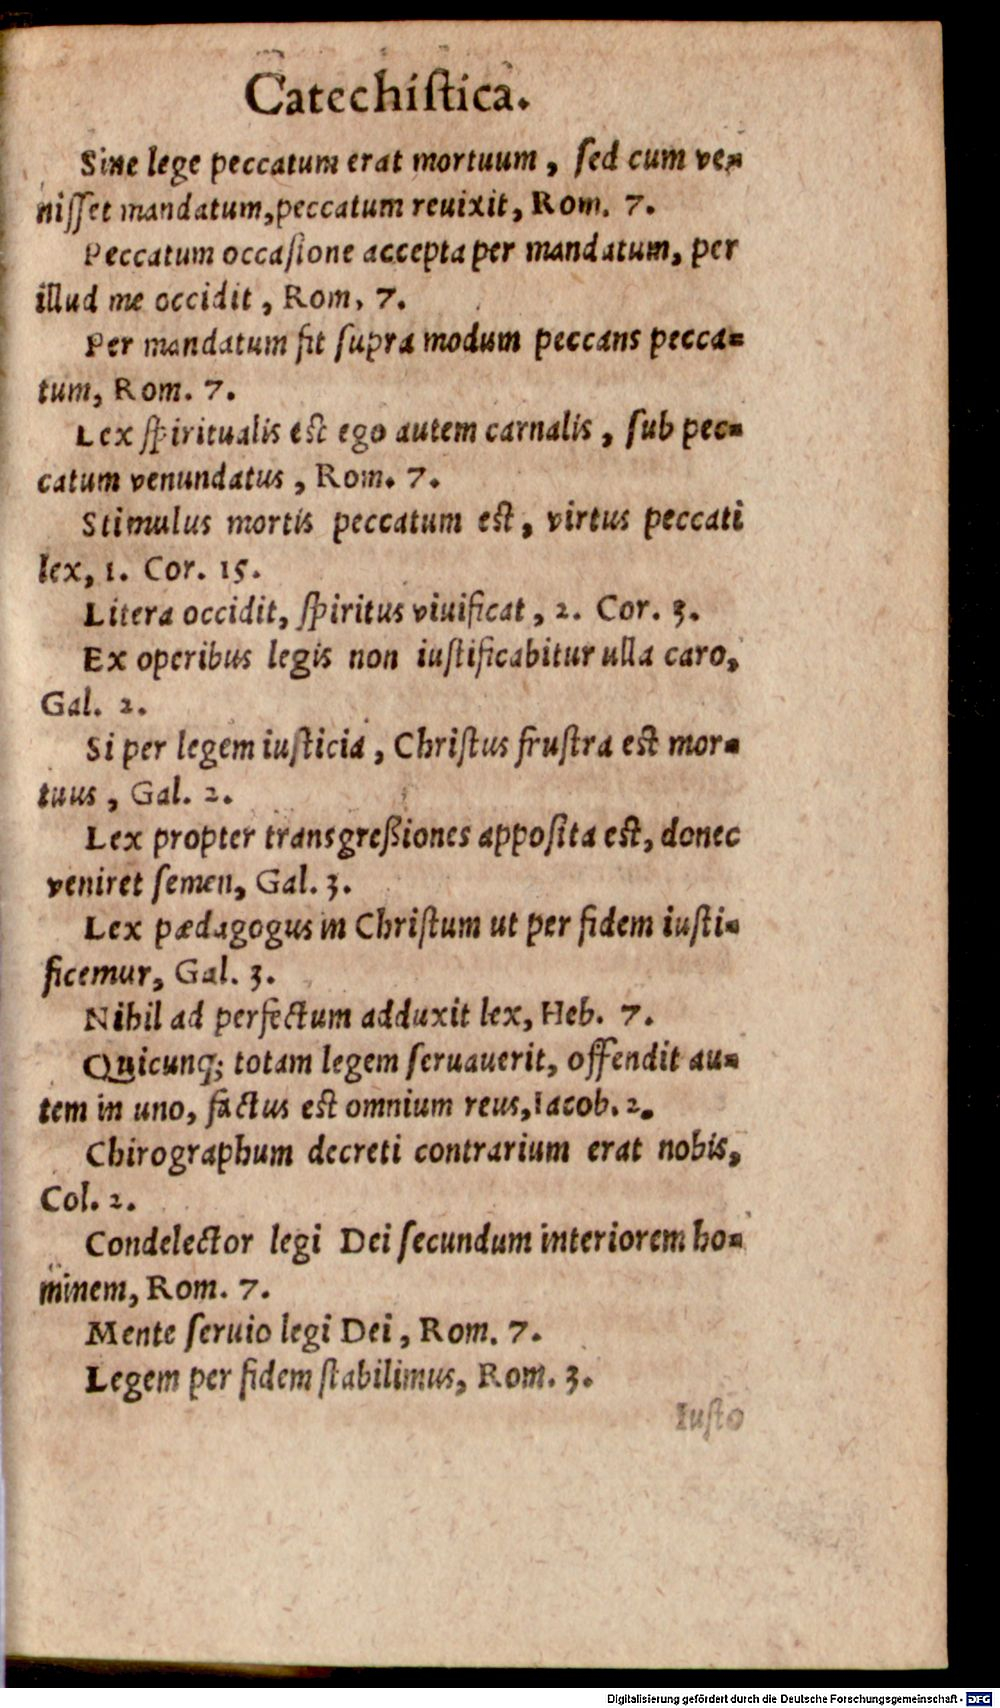 Catechiſtica.
Sine lege peccatum erat mortuum, ſed cum ve-
niſſet mandatum, peccatum reuixit, Rom. 7.
Peccatum occaſione accepta per mandatum, per
illud me occidit, Rom. 7.
Per mandatum fit ſupra modum peccans pecca-
tum, Rom. 7.
Lex ſpiritualis eſt ego autem carnalis, ſub pec-
catum venundatus, Rom. 7.
Stimulus mortis peccatum eſt, virtus peccati
lex, 1. Cor. 15.
Litera occidit, ſpiritus viuificat, 2. Cor. 3.
Ex operibus legis non iuſtificabitur ulla caro,
Gal. 2.
Si per legem iuſticia, Chriſtus fruſtra eſt mor-
tuus, Gal. 2.
Lex propter transgreßiones appoſita eſt, donec
veniret ſemen, Gal. 3.
Lex pædagogus in Chriſtum ut per fidem iuſti-
ficemur, Gal. 3.
Nihil ad perfectum adduxit lex, Heb. 7.
Quicunq; totam legem ſeruauerit, offendit au-
tem in uno, factus eſt omnium reus, Iacob. 2.
Chirographum decreti contrarium erat nobis,
Col. 2.
Condelector legi Dei ſecundum interiorem ho-
minem, Rom. 7.
Mente ſeruio legi Dei, Rom. 7.
Legem per fidem ſtabilimus, Rom. 3.
Iuſto
Digitalisierung gefördert durch die Deutsche Forschungsgemeinschaft - DFG